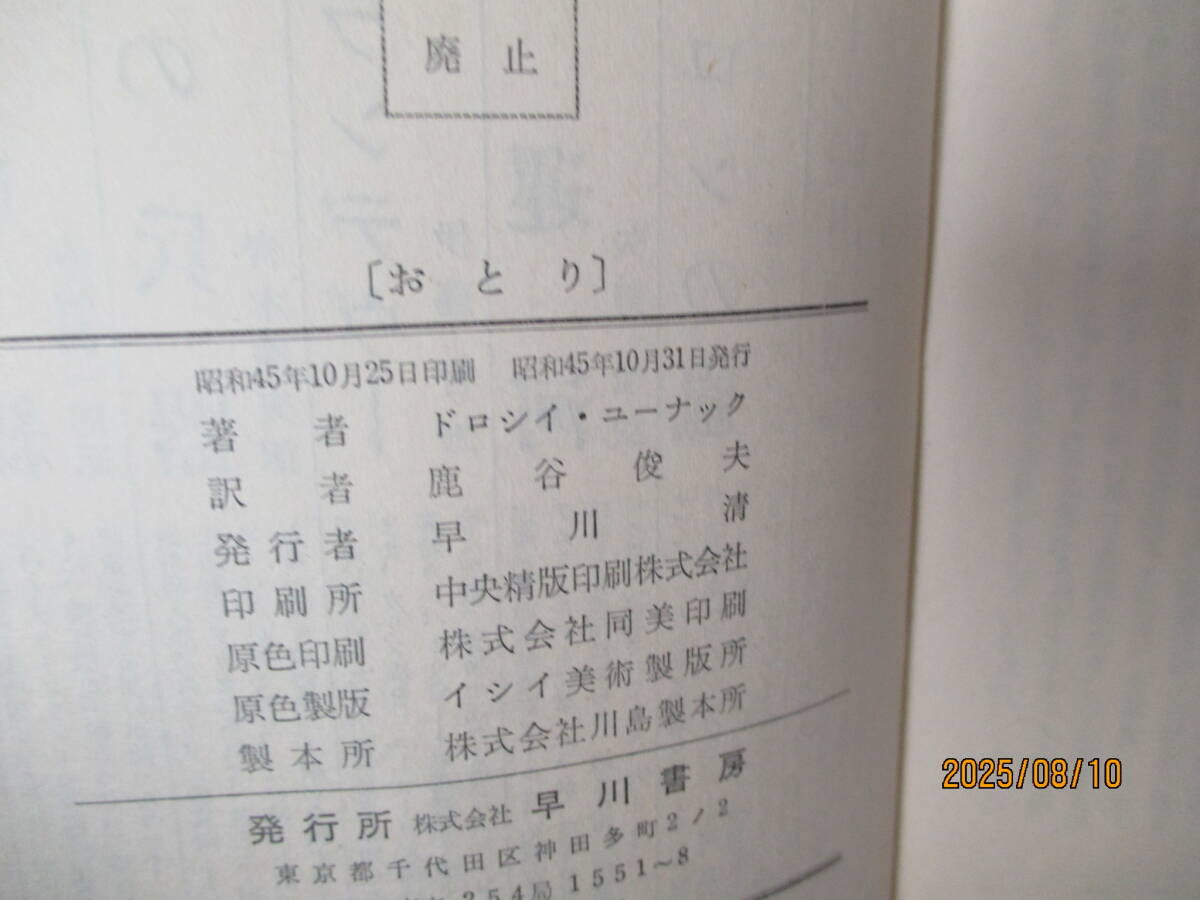 廃止
〔おとり〕
昭和45年10月25日印刷 昭和45年10月31日発行
著者 ドロシイ・ユーナック
訳者 鹿谷俊夫
発行者 早川清
印刷所 中央精版印刷株式会社
原色印刷 株式会社同美印刷
原色製版 イシイ美術製版所
製本所 株式会社川島製本所
発行所 株式会社 早川書房
東京都千代田区神田多町2ノ2
254局1551〜8
2025/08/10